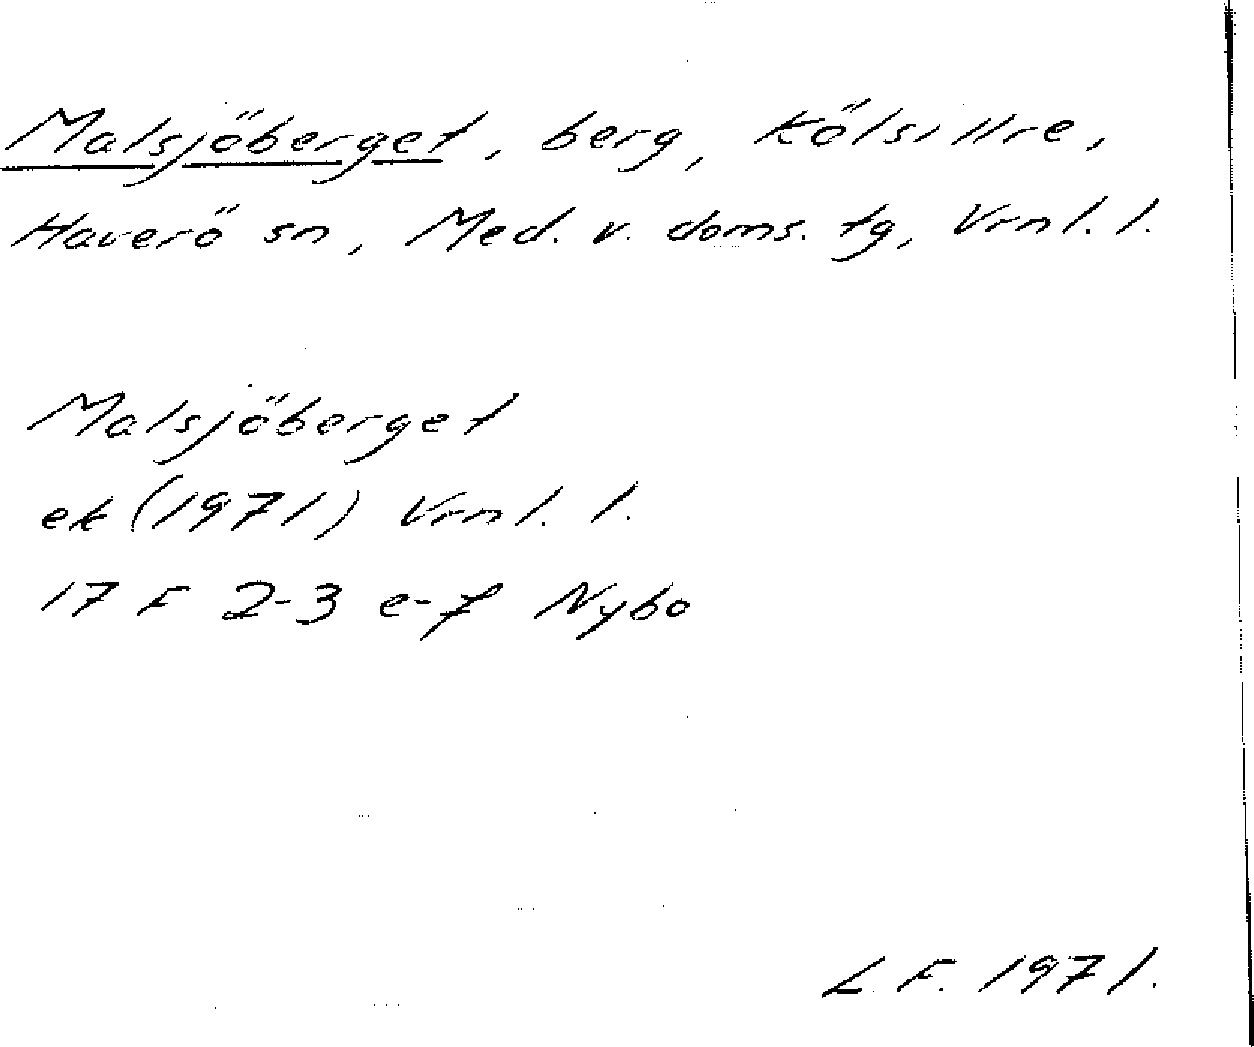 Malsjöberget, berg, Kölsillre,
Haverö sn, Med. v. doms. tg, Vrnl. l.
Malsjöberget
ek (1971) Vrnl. l.
17 F 2-3 e-f Nybo
L. F. 1971.